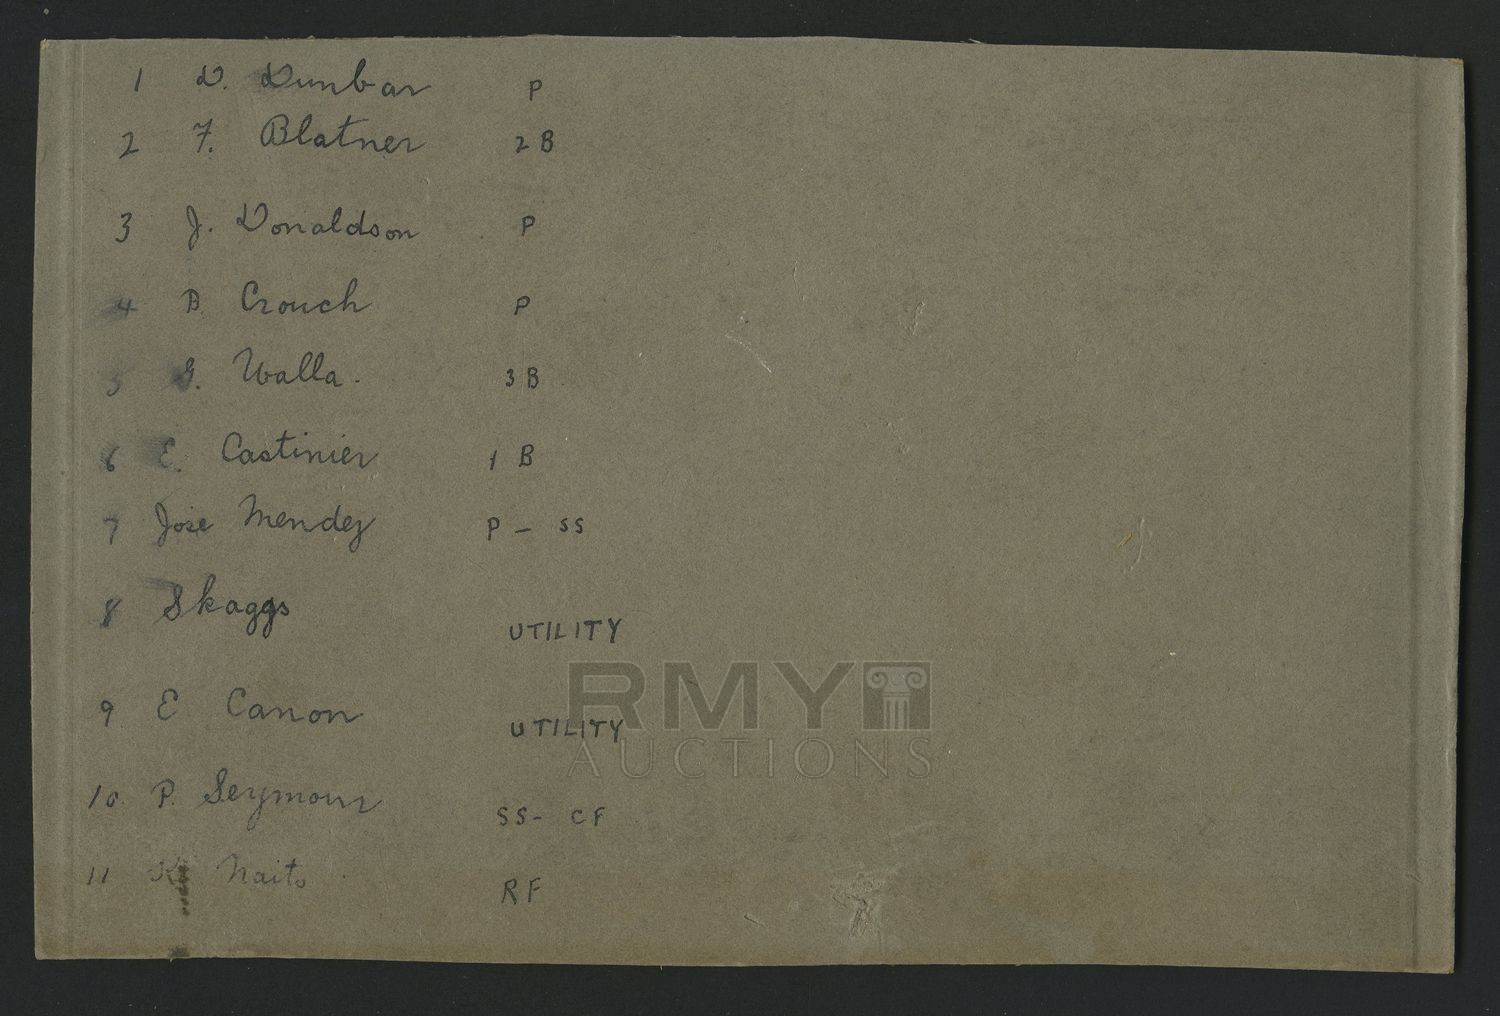 1 D. Dunbar P
2 F. Blatner 2B
3 J. Donaldson P
4 B Crouch P
5 G. Walla. 3B
6 E. Castinier 1 B
7 Jose Mendez P - SS
8 Skaggs UTILITY
9 E Canon UTILITY
10. P. Seymour SS- CF
11 K. Naito RF
RMY AUCTIONS